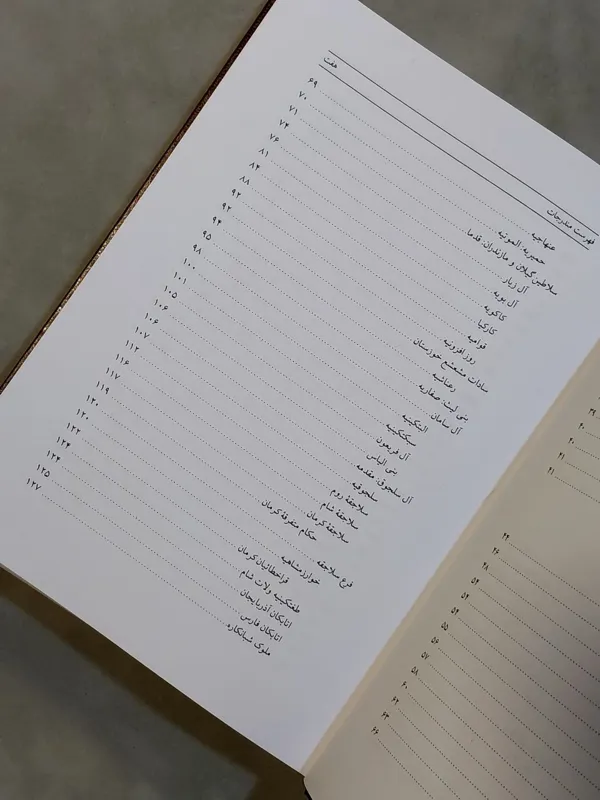 فهرست مندرجات هفت
صنهاجیه ۶۹
حمیریه: الموتیه ۷۰
سلاطین گیلان و مازندران: قدما ۷۱
آل زیار ۷۴
آل بویه ۷۶
کاکویه ۸۱
کارکیا ۸۴
قوامیه ۸۸
روزافزونیه ۹۲
سادات مشعشع خوزستان ۹۲
رعناشیه ۹۴
بنی لیث: صفاریه ۹۵
آل سامان ۹۸
البتکینیه ۱۰۰
سبکتکینیه ۱۰۱
آل فریعون ۱۰۵
بنی الیاس ۱۰۶
آل سلجوق: مقدمه ۱۰۶
سلجوقیه ۱۰۷
سلاجقهٔ روم ۱۱۲
سلاجقهٔ شام ۱۱۶
سلاجقهٔ کرمان ۱۱۷
حکام متفرقهٔ کرمان ۱۱۹
فرع سلاجقه ۱۲۰
خوارزمشاهیه ۱۲۰
قراخطائیان کرمان ۱۲۲
طغتکینیه ولات شام ۱۲۴
اتابکان آذربایجان ۱۲۴
اتابکان فارس ۱۲۵
ملوک شبانکاره ۱۲۷
۳۹
۴۰
۴۰
۴۱
۴۱
۴۴
۴۶
۴۸
۵۴
۵۴
۵۴
۵۵
۵۶
۵۷
۵۸
۶۰
۶۲
۶۳
۶۶